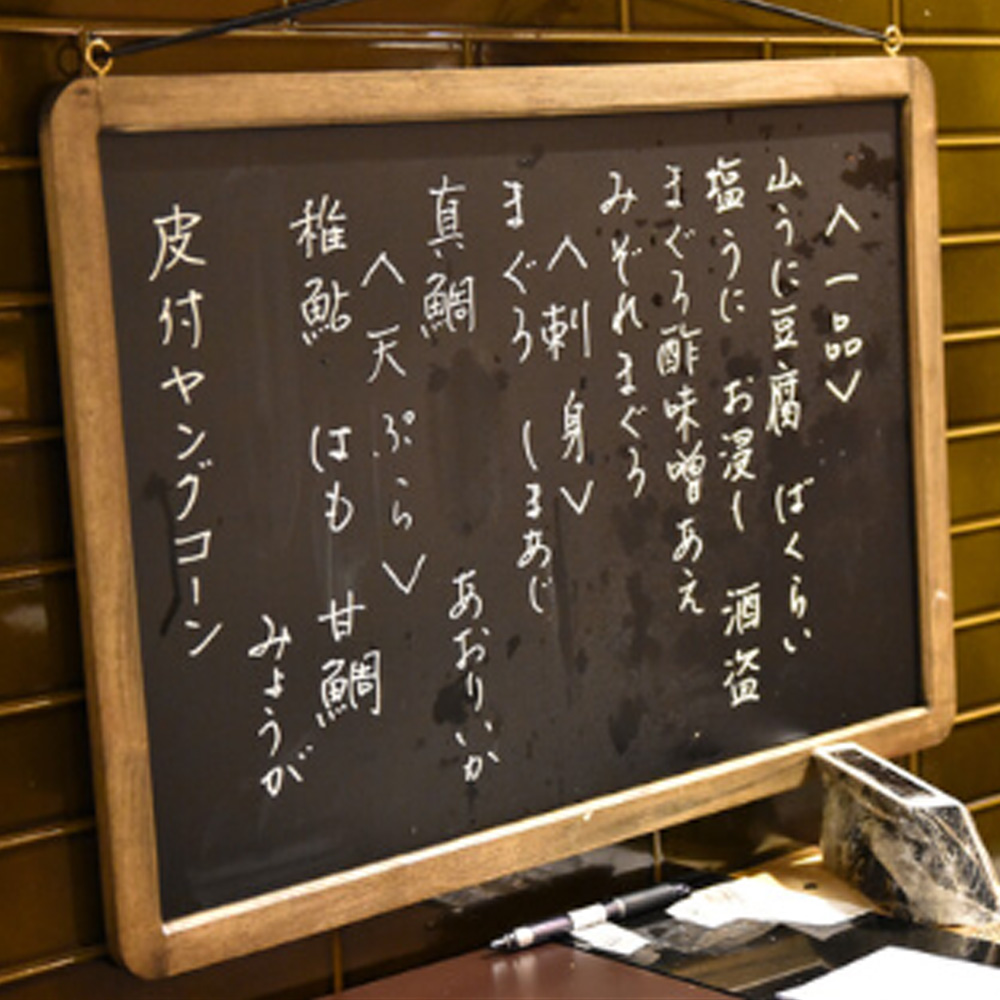 〈一品〉
山うに豆腐 ばくらい
塩うに お浸し 酒盗
まぐろ酢味噌あえ
みぞれまぐろ
〈刺身〉
まぐろ しまあじ
真鯛 あおりいか
〈天ぷら〉
稚鮎 はも 甘鯛
みょうが
皮付ヤングコーン